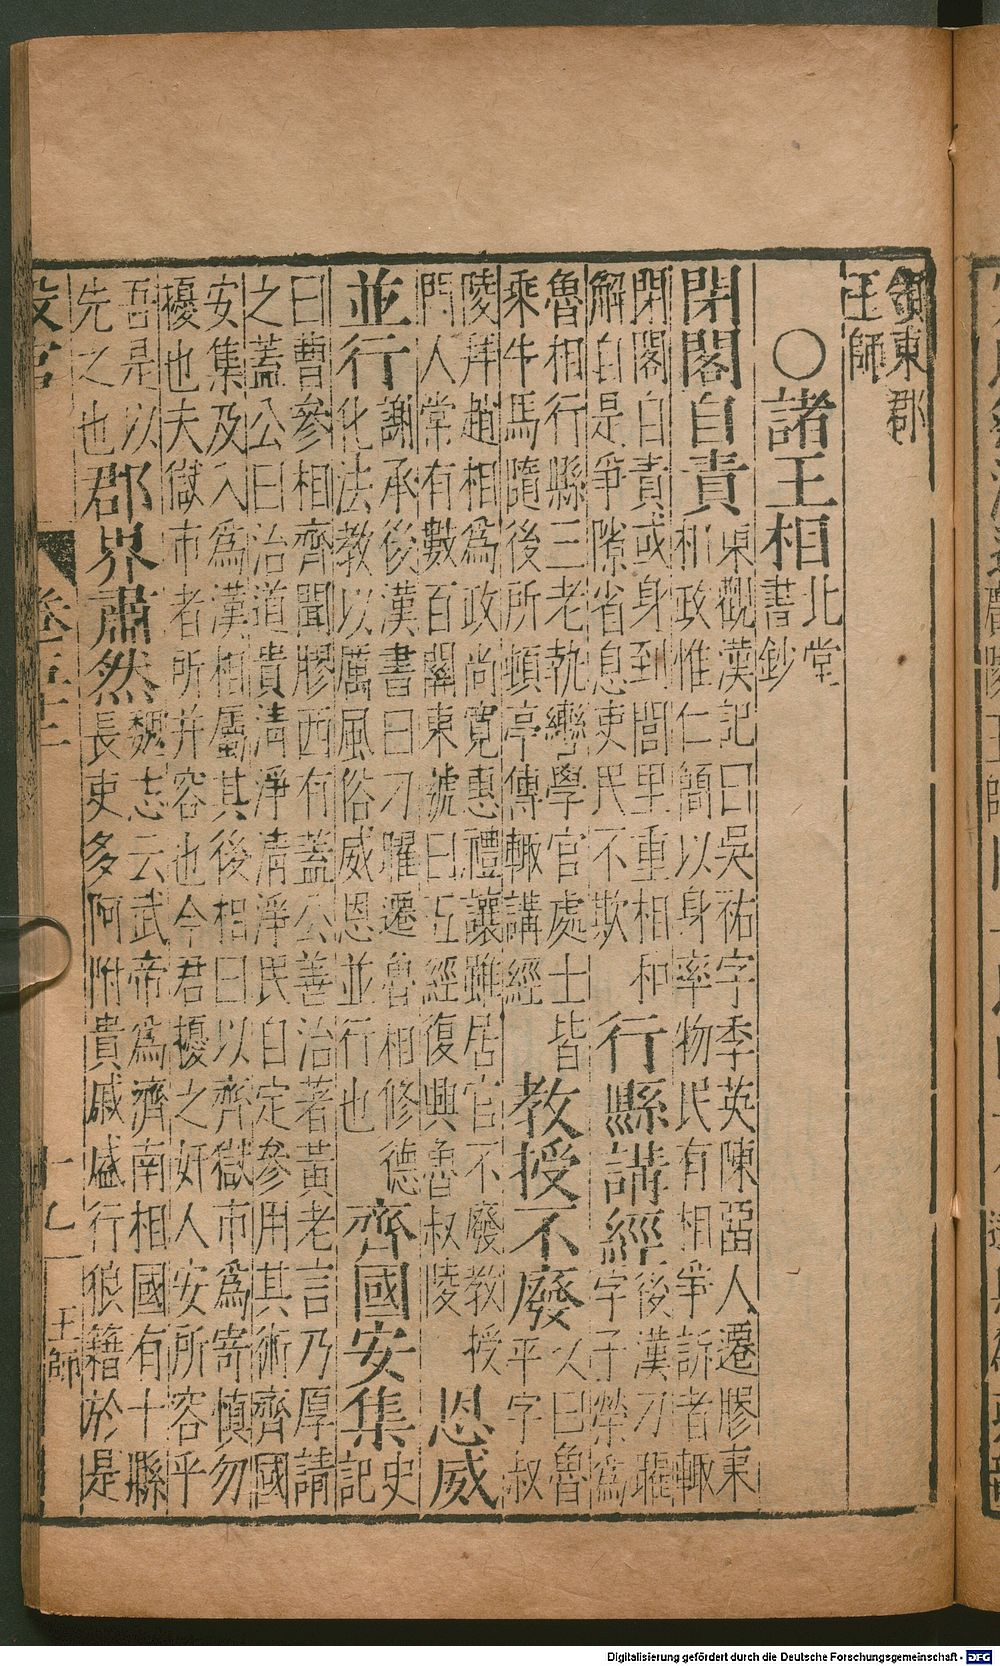 領東郡
王師
○諸王相 北堂
書鈔
閉閣自責 東觀漢記曰吳祐字季英陳畱人遷膠東
相政惟仁簡以身率物民有相爭訴者輒
閉閣自責或身到閭里重相和
解自是爭隙省息吏民不欺 行縣講經 後漢刁曜
字子榮為
魯相行縣三老執轡學官處士皆
乘牛馬隨後所頓亭傳輒講經 教授不廢 又曰魯
平字叔
陵拜趙相為政尚寬惠禮讓雖居官不廢教授
門人常有數百關東號曰五經復興魯叔陵 恩威
並行 謝承後漢書曰刁曜遷魯相修德
化法教以厲風俗威恩並行也 齊國安集 史
記
曰曹參相齊聞膠西有蓋公善治著黃老言乃厚請
之蓋公曰治道貴清淨清淨民自定參用其術齊國
安集及入為漢相屬其後相曰以齊獄市為寄慎勿
擾也夫獄市者所并容也今君擾之奸人安所容乎
吾是以
先之也 郡界肅然 魏志云武帝為濟南相國有十縣
長吏多阿附貴戚行狼籍於是
王師
Digitalisierung gefördert durch die Deutsche Forschungsgemeinschaft - DFG